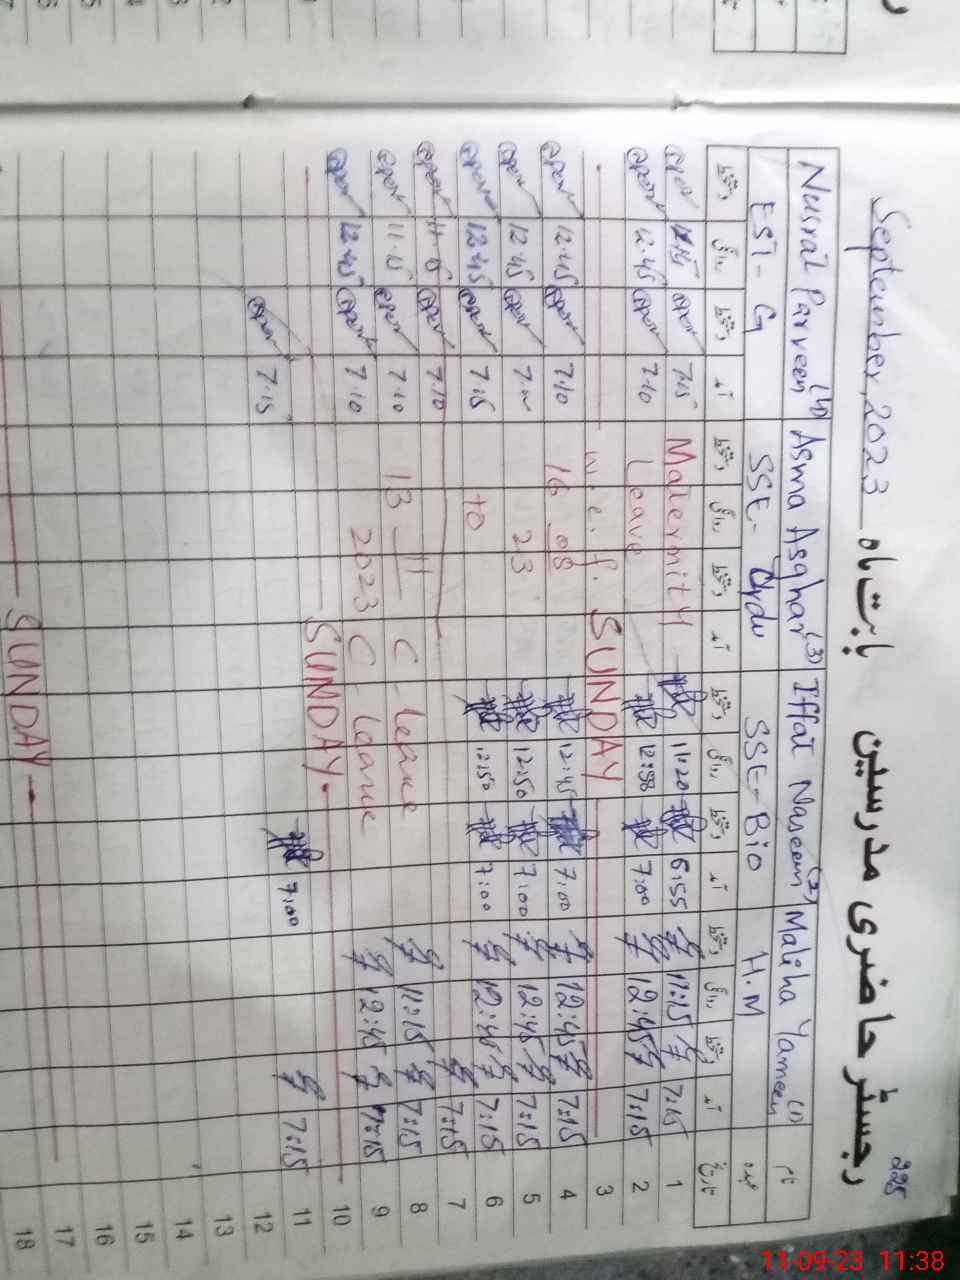 225
رجسٹر حاضری مدرسین بابت ماہ September, 2023
نام Maliha Yameen (1) Iffat Naseem (2) Asma Asghar (3) Nusrat Parveen (4)
عہدہ H.M SSE-Bio SSE-Urdu EST-G
تاریخ آمد دستخط روانگی دستخط آمد دستخط روانگی دستخط آمد دستخط روانگی دستخط آمد دستخط روانگی دستخط
1 7:15 11:15 6:55 11:20 Maternity 7.15
2 7:15 12:45 7:00 Leave 7.10 12.45
3 SUNDAY w.e.f.
4 7:15 12:45 7:00 12:45 16 08 7.10 12.45
5 7:15 12:45 7:00 12:50 23 12.45
6 7:15 12:45 7:00 12:50 to 7.15 12.45
7 7:15 7.10 11.15
8 7:15 11:15 C-leave 13 11 7.10 11.15
9 7:15 12:45 C-leave 2023 7.10 12.45
10 SUNDAY
11 7:15 7:00 7.15
12
13
14
15
16
17 SUNDAY
18
11-09-23 11:38